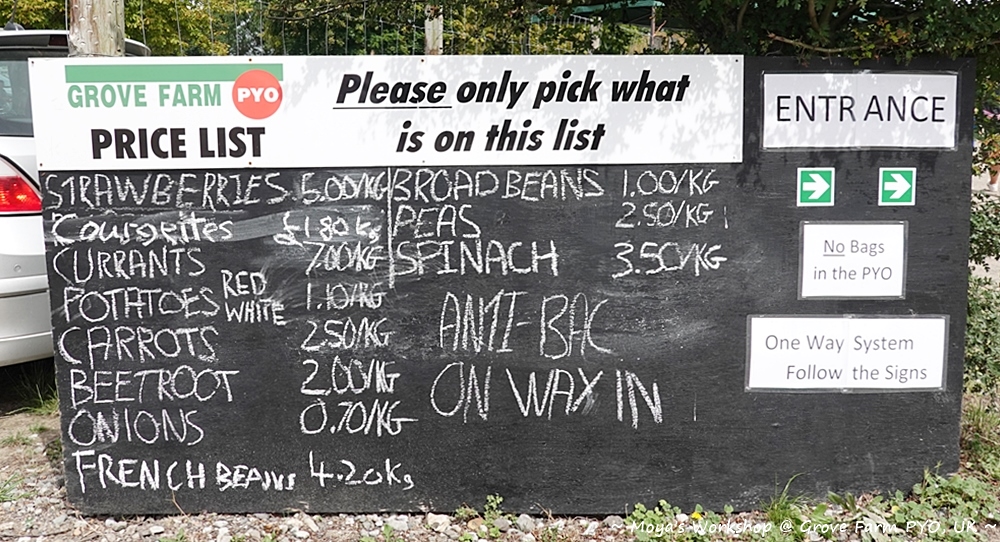 GROVE FARM PYO
PRICE LIST
Please only pick what
is on this list
STRAWBERRIES 5.00/KG
Courgettes £1.80 kg
CURRANTS 7.00/KG
POTATOES RED WHITE 1.10/KG
CARROTS 2.50/KG
BEETROOT 2.00/KG
ONIONS 0.70/KG
FRENCH BEANS 4.20kg
BROAD BEANS 1.00/KG
PEAS 2.50/KG
SPINACH 3.50/KG
ANTI-BAC
ON WAY IN
ENTRANCE
No Bags
in the PYO
One Way System
Follow the Signs
~ Moya's Workshop @ Grove Farm PYO, UK ~